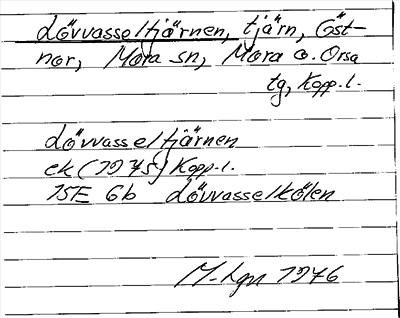 Lövvasseltjärnen, tjärn, Öst-
nor, Mora sn, Mora o. Orsa
tg, Kopp. l.
Lövvasseltjärnen
ek (1975) Kopp. l.
15E 6b Lövvasselkölen
1976